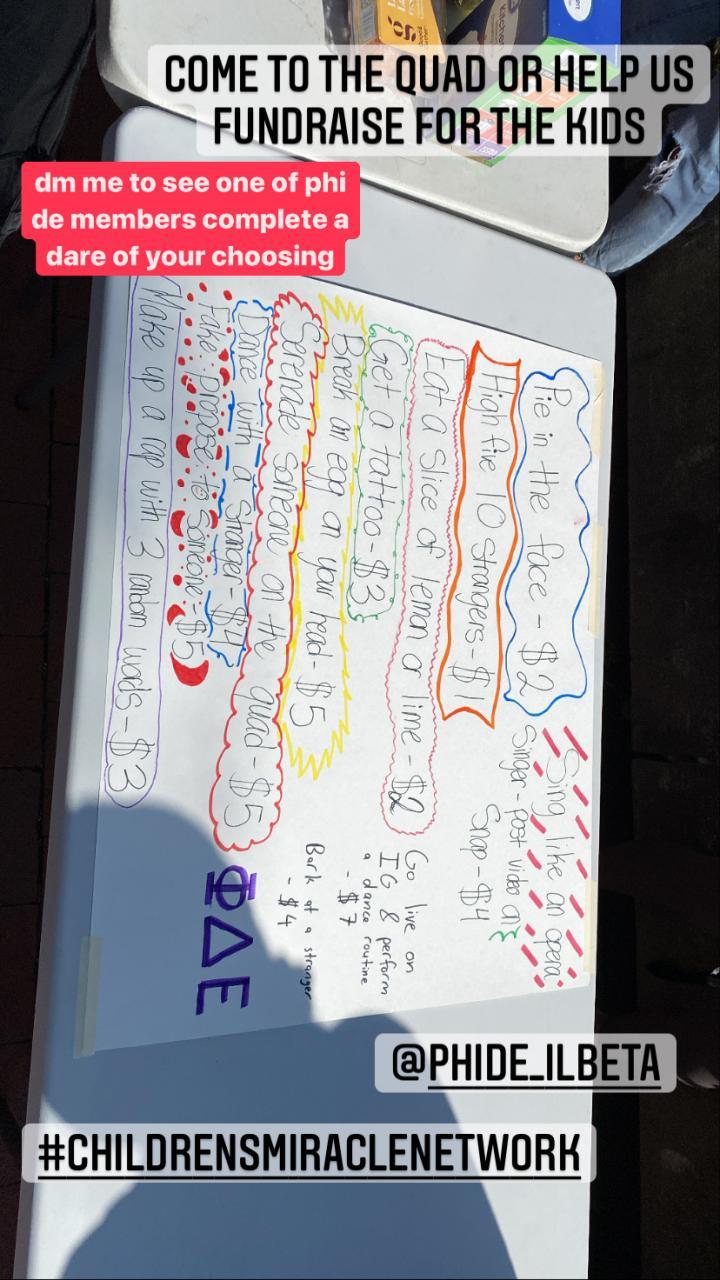 COME TO THE QUAD OR HELP US
FUNDRAISE FOR THE KIDS
dm me to see one of phi
de members complete a
dare of your choosing
Pie in the face - $2
High five 10 strangers - $1
Eat a slice of lemon or lime - $2
Get a tattoo - $3
Break an egg on your head - $5
Serenade someone on the quad - $5
Dance with a stranger - $4
Fake propose to someone - $5
Make up a rap with 3 random words - $3
Sing like an opera
singer - post video on
Snap - $4
Go live on
IG & perform
a dance routine
- $7
Bark at a stranger
- $4
ΦΔΕ
@PHIDE_ILBETA
#CHILDRENSMIRACLENETWORK